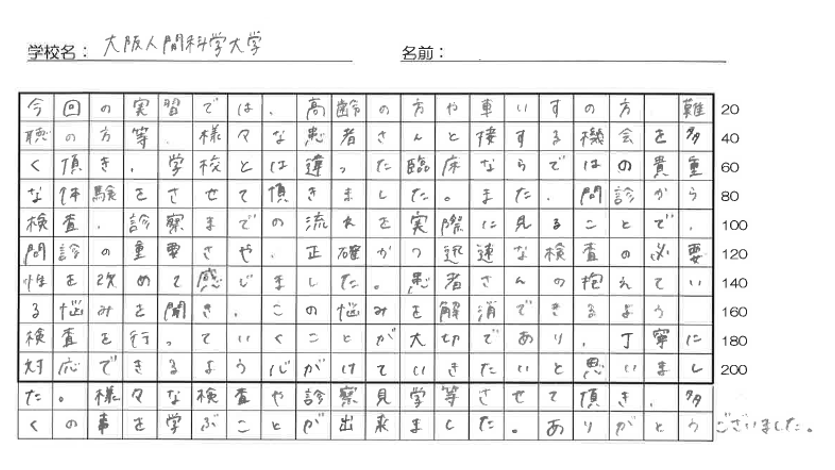 学校名： 大阪人間科学大学
名前：
今回の実習では、高齢の方や車いすの方、難 20
聴の方等、様々な患者さんと接する機会を多 40
く頂き、学校とは違った臨床ならではの貴重 60
な体験をさせて頂きました。また、問診から 80
検査、診察までの流れを実際に見ることで、 100
問診の重要さや、正確かつ迅速な検査の必要 120
性を改めて感じました。患者さんの抱えてい 140
る悩みを聞き、この悩みを解消できるよう 160
検査を行っていくことが大切であり、丁寧に 180
対応できるよう心がけていきたいと思いまし 200
た。様々な検査や診察見学等させて頂き、多
くの事を学ぶことが出来ました。ありがとうございました。